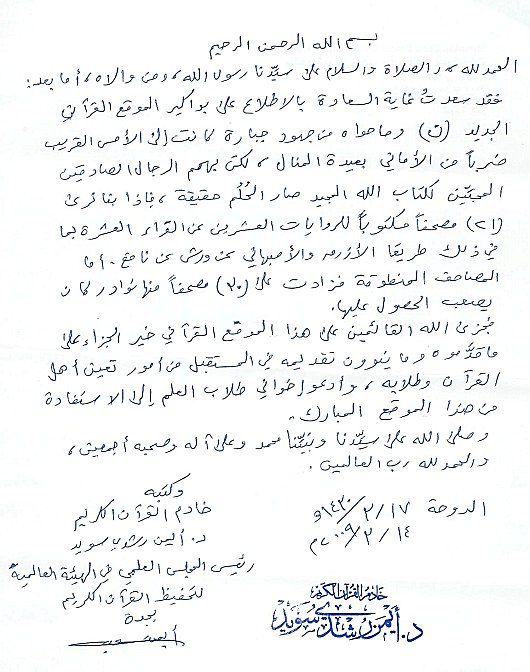 بسم الله الرحمن الرحيم
الحمد لله، والصلاة والسلام على سيّدنا رسول الله، ومن والاه، أما بعد:
فقد سعدتُ غاية السعادة بالاطلاع على بواكير الموقع القرآني
الجديد (ن) وما حواه من جهود جبارة كانت إلى الأمس القريب
ضرباً من الأماني بعيدة المنال، لكن بهمم الرجال الصادقين
المحبّين لكتاب الله المجيد صار الحُلُم حقيقة، فإذا بنا نرى
(٢١) مصحفاً مكتوباً للروايات العشرين عن القراء العشرة بما
في ذلك طريقا الأزرق والأصبهاني عن ورش عن نافع. أما
المصاحف المنطوقة فزادت على (٣٠) مصحفاً منها نوادر كان
يصعب الحصول عليها.
فجزى الله القائمين على هذا الموقع القرآني خير الجزاء على
ما قدّموه وما ينوون تقديمه في المستقبل من أمور تعين أهل
القرآن وطلابه، وأدعو إخواني طلاب العلم إلى الاستفادة
من هذا الموقع المبارك.
وصلى الله على سيّدنا ونبيّنا محمد وعلى آله وصحبه أجمعين،
والحمد لله رب العالمين.
وكتبه
خادم القرآن الكريم
د. أيمن رشدي سويد
رئيس المجلس العلمي في الهيئة العالمية
لتحفيظ القرآن الكريم
بجدة
أيمن سويد
الدوحة ١٧/٢/١٤٣٠هـ
١٤/٢/٢٠٠٩م
خادم القرآن الكريم
د. أيمن رشدي سويد